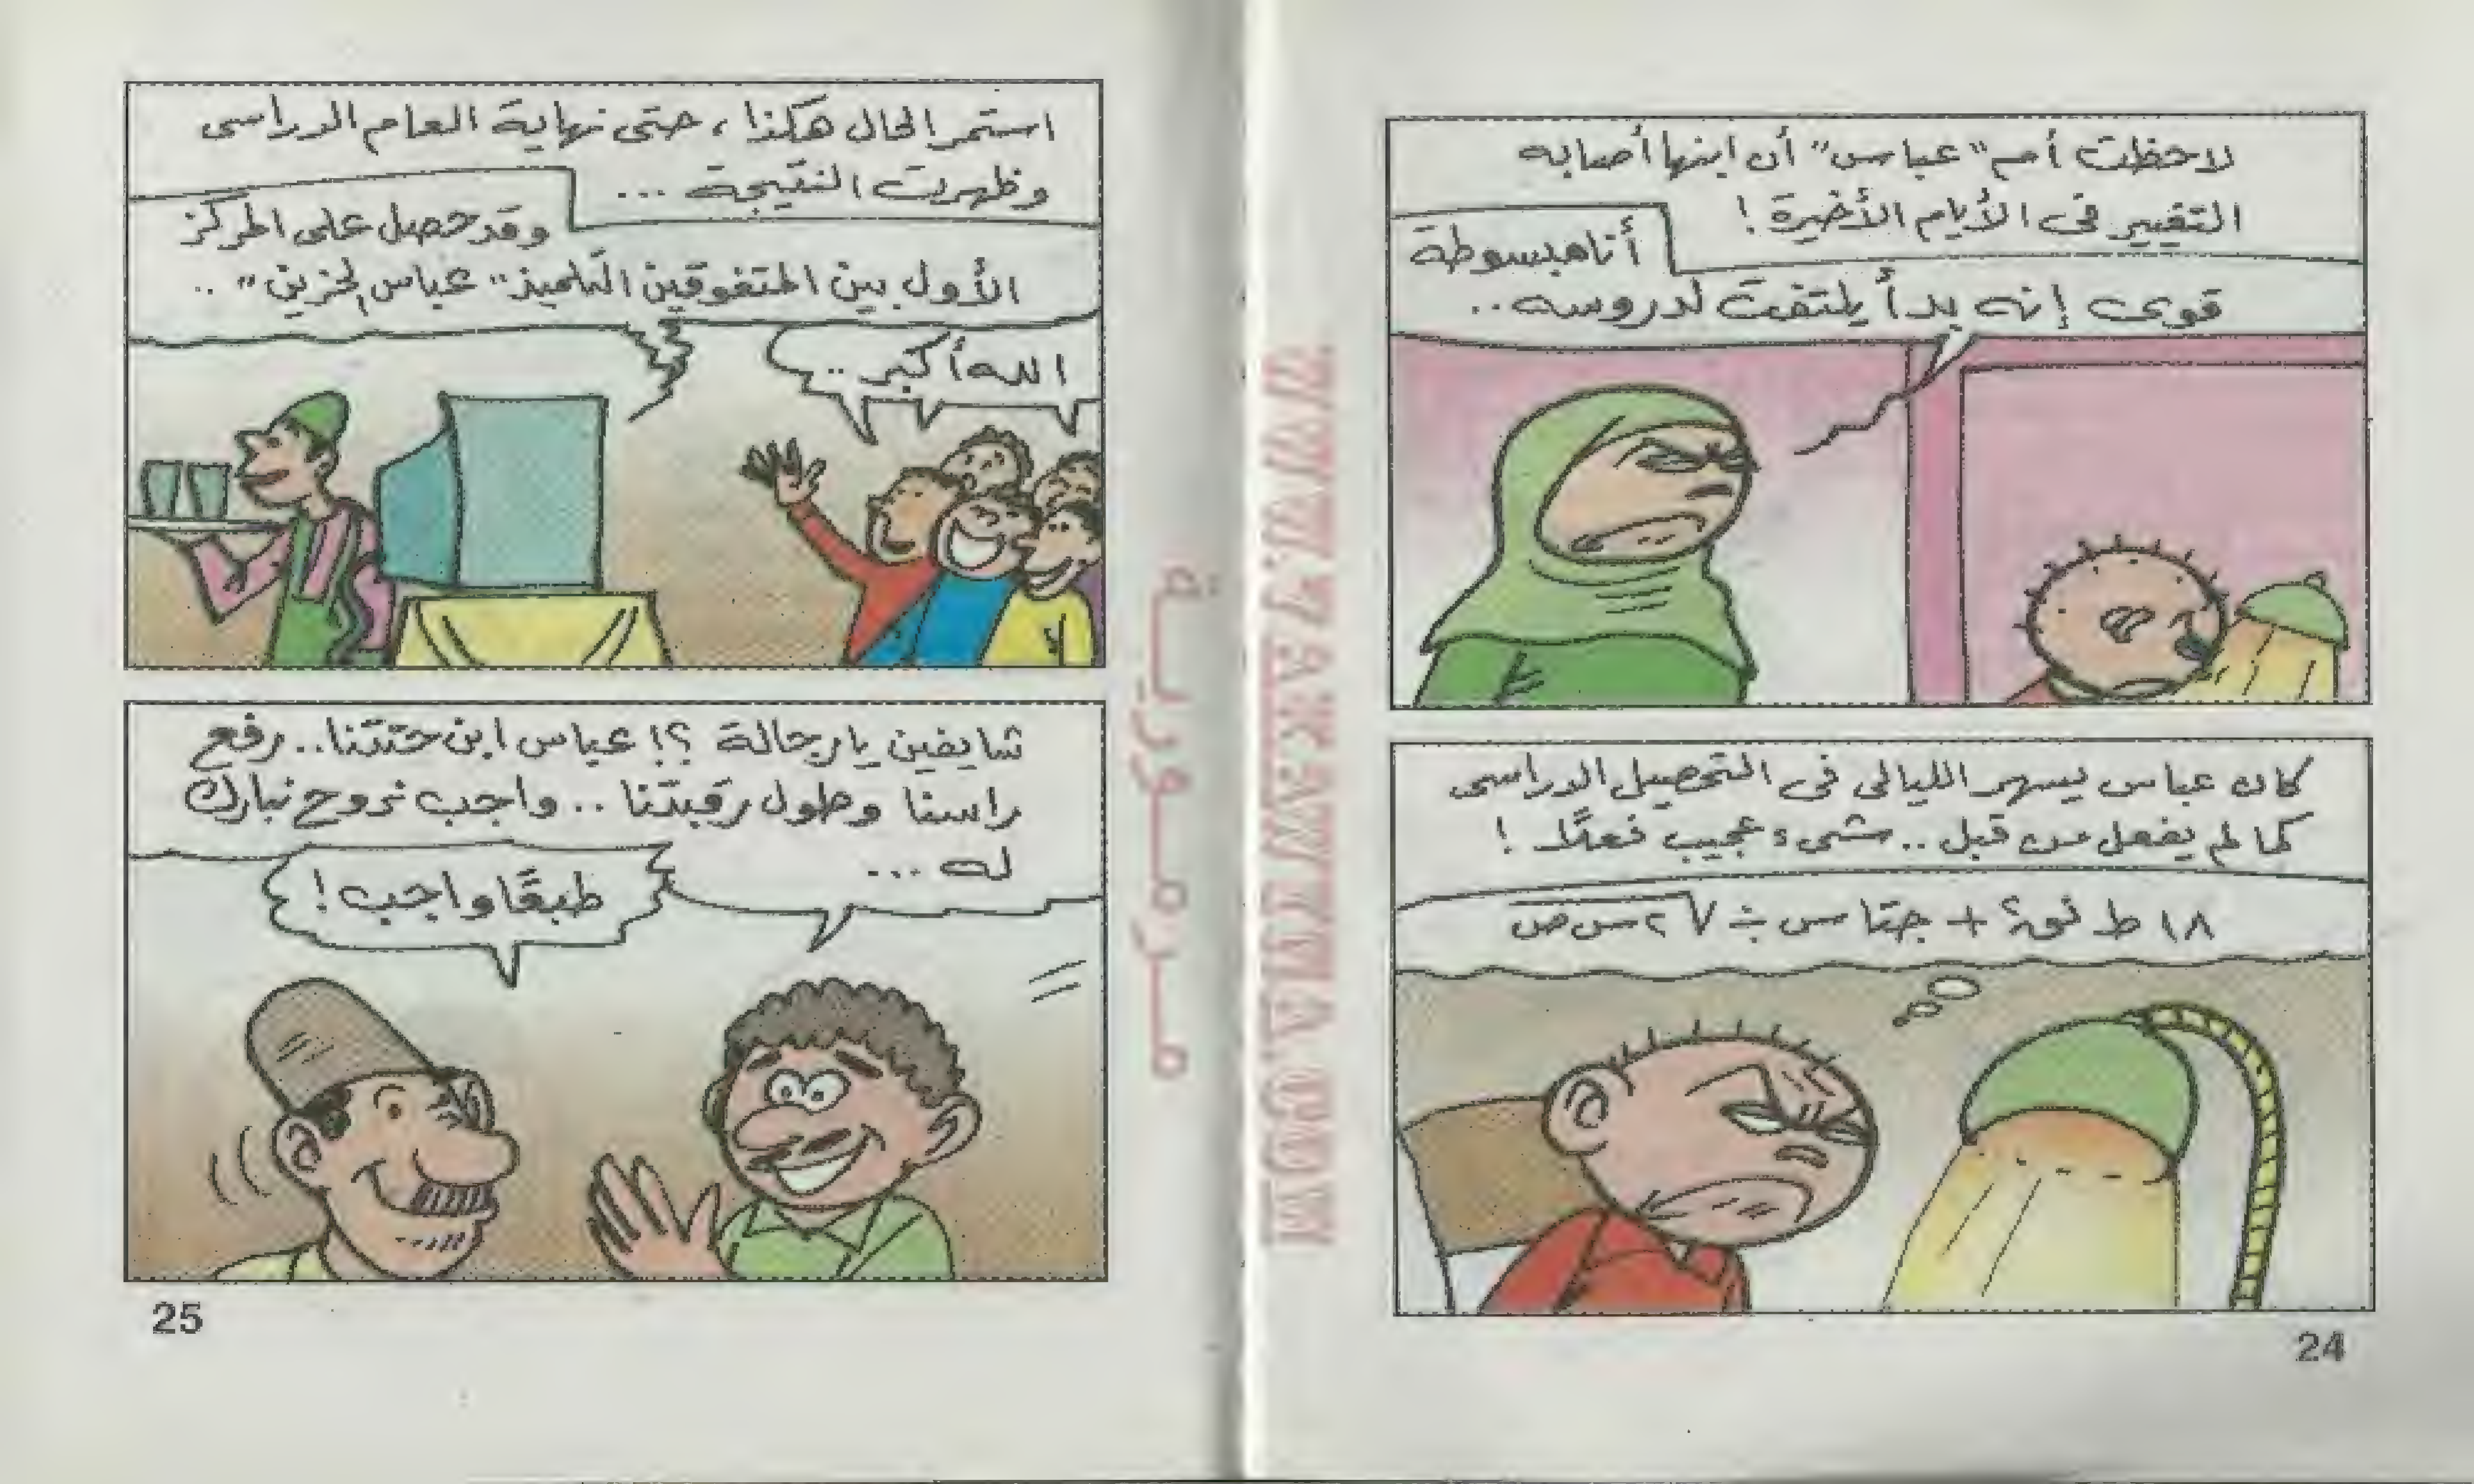 لاحظت أم "عباس" أن ابنها أصابه
التغيير فى الأيام الأخيرة !
أنا مبسوطة
قوى إنه بدأ يلتفت لدروسه ..
كان عباس يسهر الليالى فى التحصيل الدراسى
كما لم يفعل من قبل .. شىء عجيب فعلًا !
24
استمر الحال هكذا ، حتى نهاية العام الدراسى
وظهرت النتيجة ...
وقد حصل على المركز
الأول بين المتفوقين التلميذ "عباس الحزين" ..
الله أكبر ..
شايفين يا رجالة ؟! عباس ابن حتتنا .. رفع
راسنا وطول رقبتنا .. واجب نروح نبارك
له ...
طبعًا واجب !
25